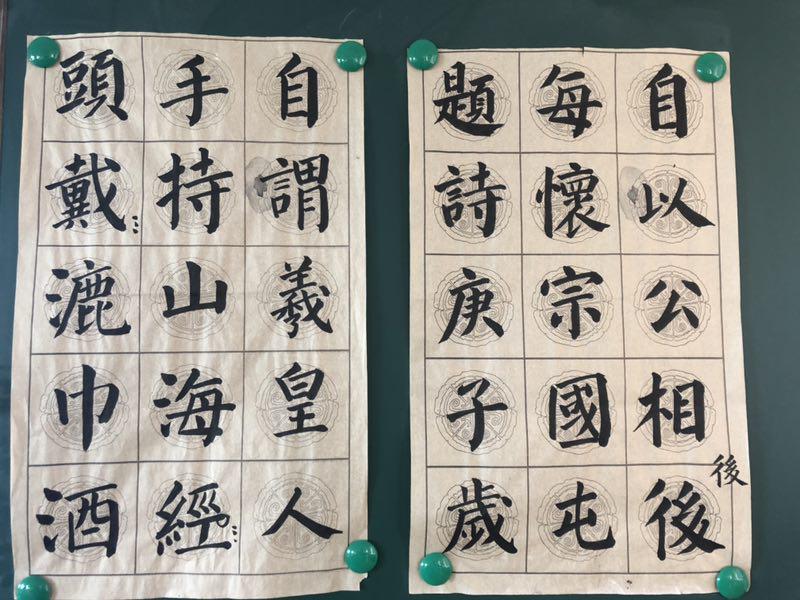 自以公相後
後
每懷宗國屯
題詩庚子歲
自謂羲皇人
手持山海經
頭戴漉巾酒